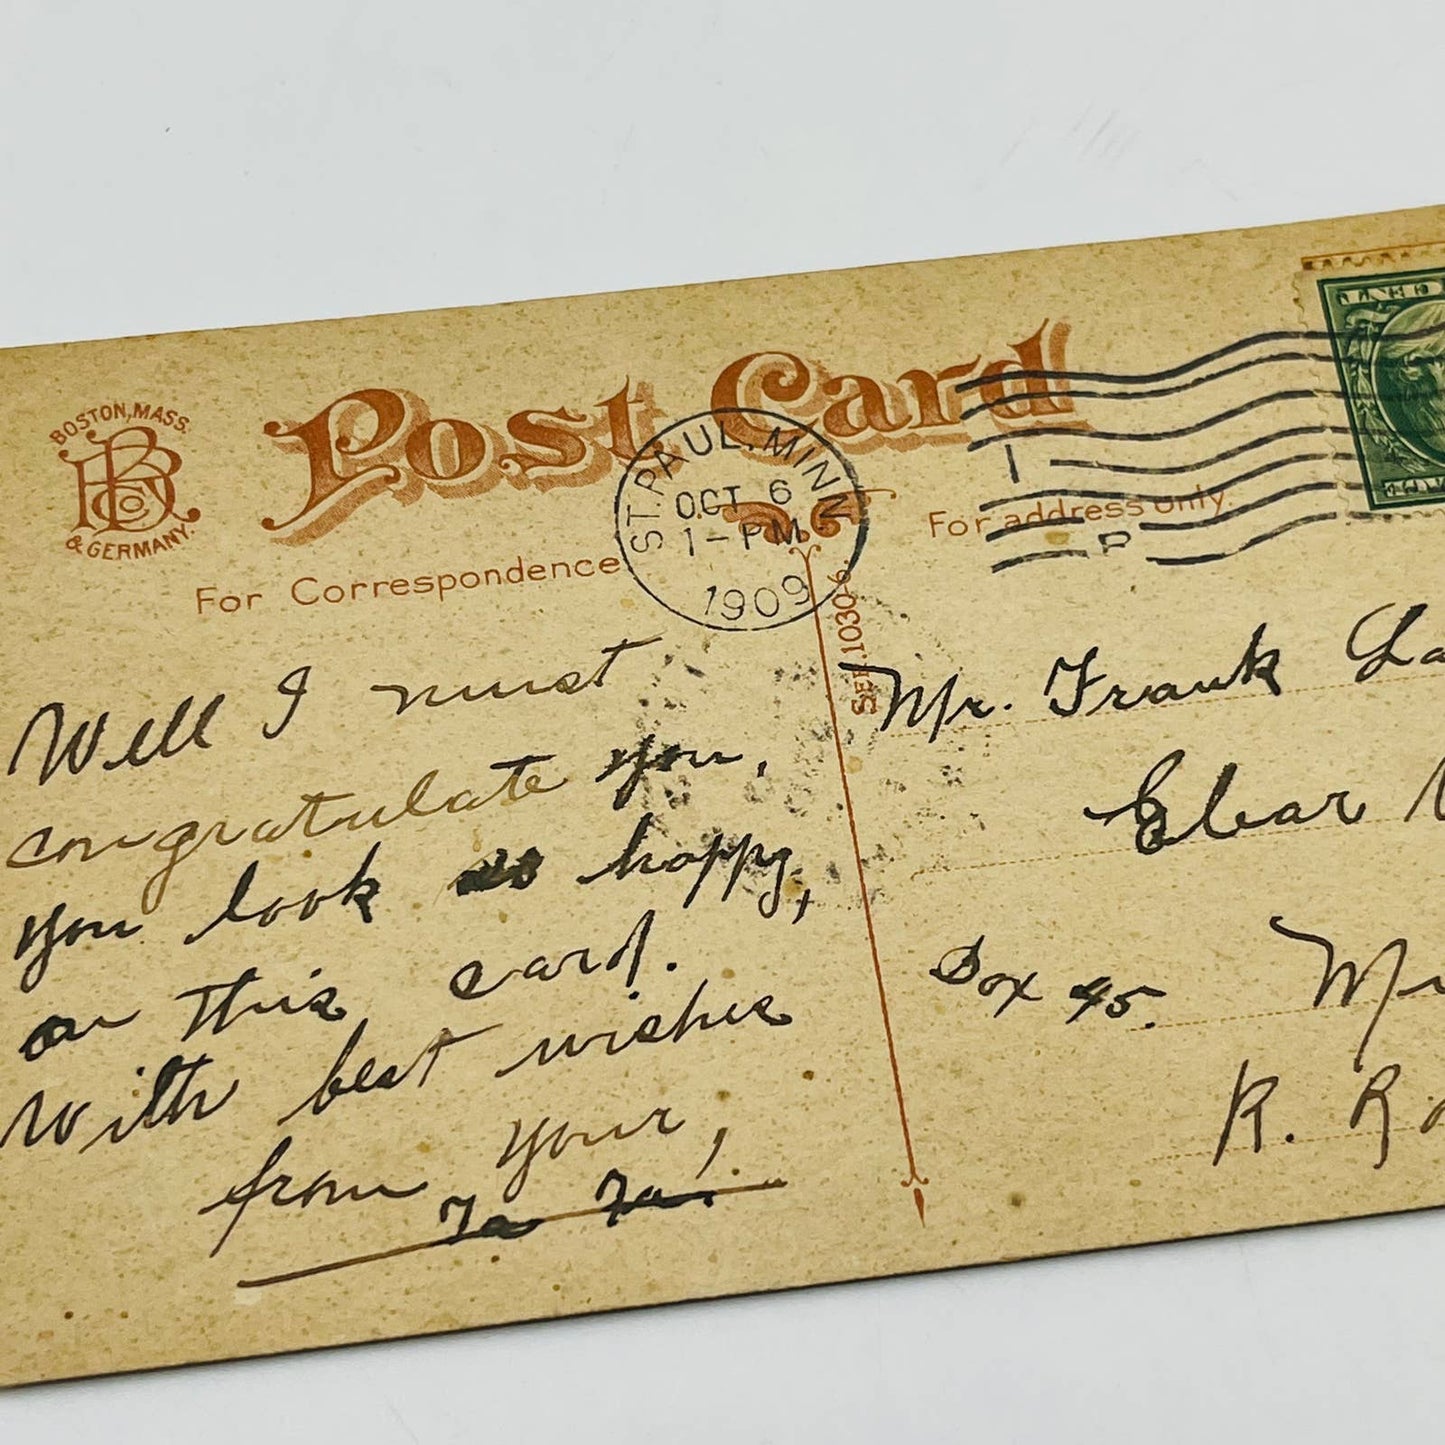 BOSTON, MASS.
& GERMANY.
Post Card
ST. PAUL, MINN.
OCT 6
1-PM
1909
For Correspondence
For address only.
SER. 1030-6.
Well I must
congratulate you,
you look so happy,
on this card.
With best wishes
from your,
Ta Ta.
Mr. Frank La
Clear
Box 45. Mi
R. R